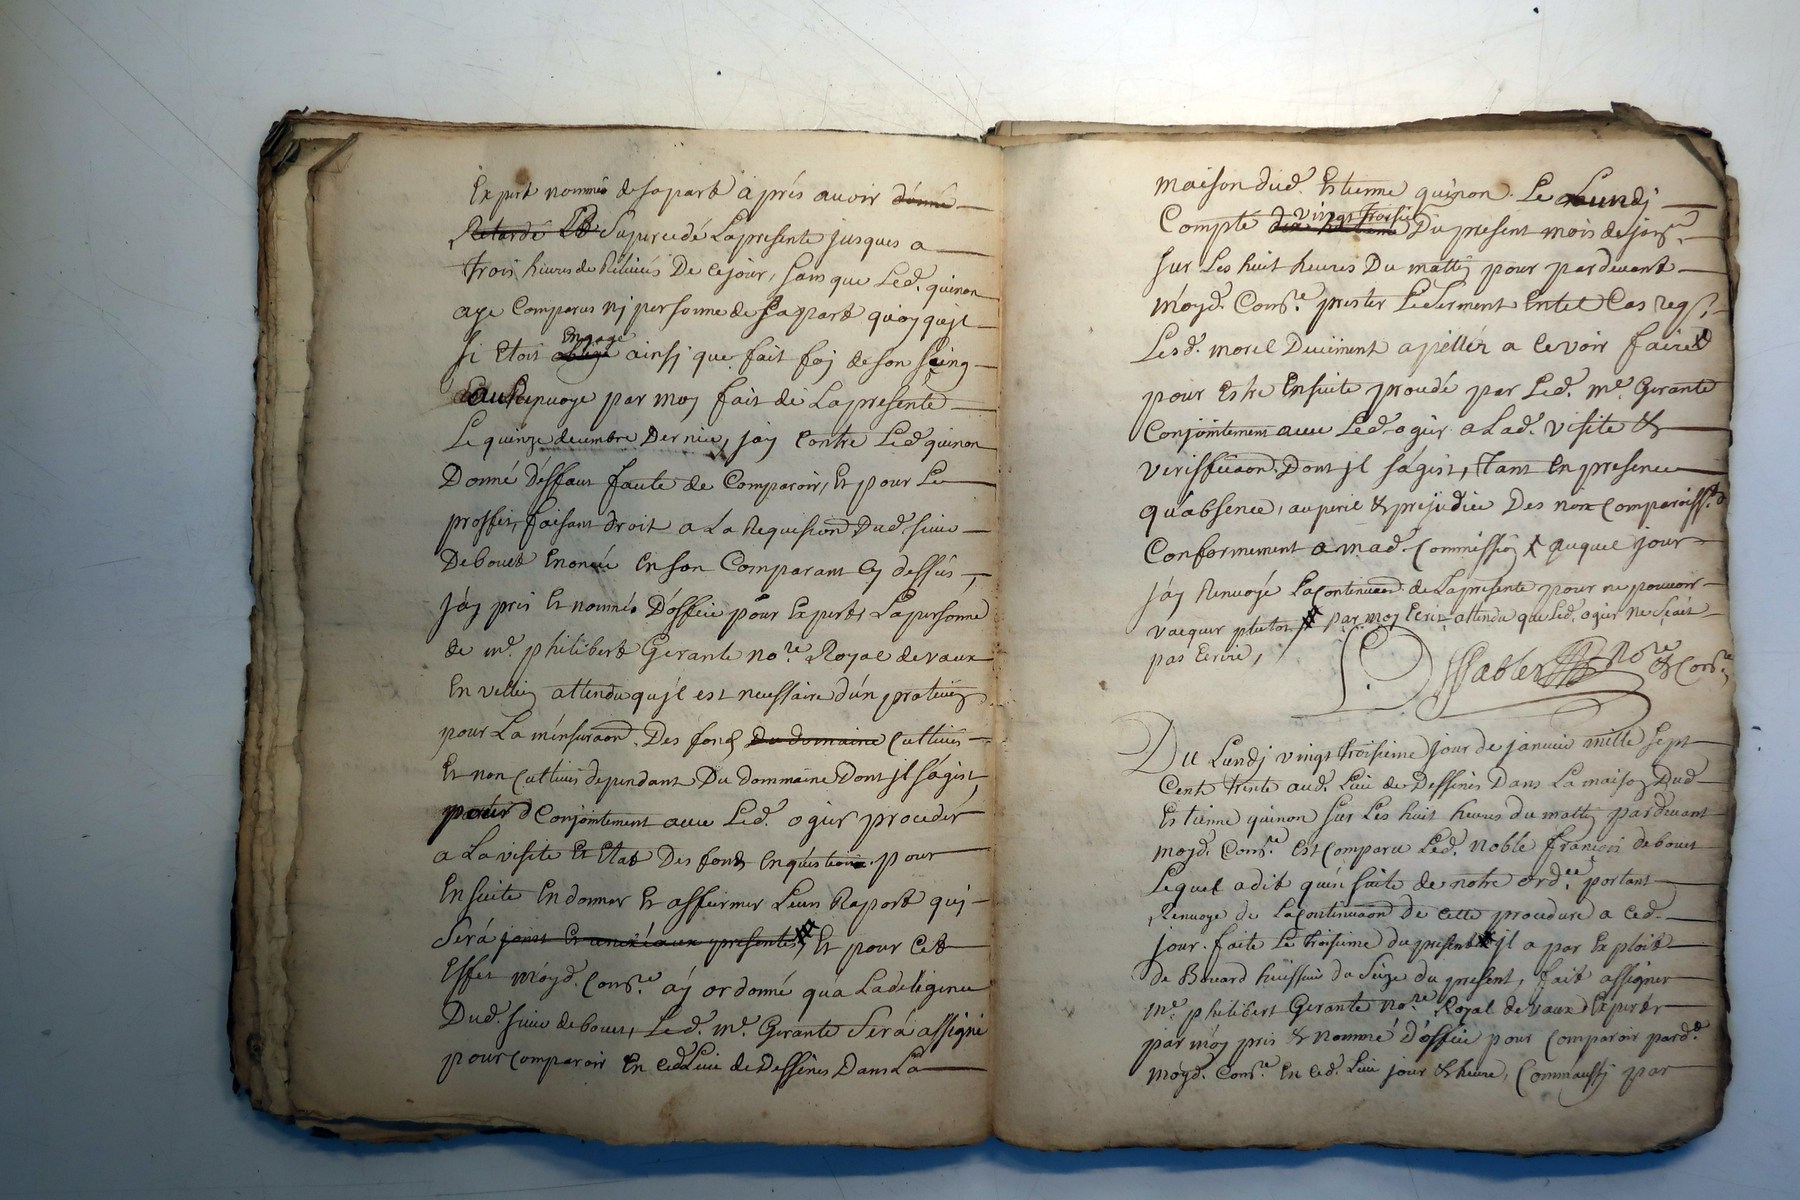 Expert nommée de sa part aprés auoir donné
Retardé Et Supercedé La presente jusques a
trois heures de Relevées De ce jour, sans que Led. quinon
aye Comparus nj personne de sa part quoy qu'jl
sj étois obligé Engagé ainsj que fait foj de son seing
au Renuoye par moy fait de La presente
Le quinze decembre Dernier, jáy contre Led. quinon
Donné Déffaut faute de Comparoir, Et pour Le
proffit, faisant droit a La Requision Dud. sieur
Debouet Enoncée En son Comparant Cy dessus,
jáy pris Et nommés D'office pour Experts La personne
de me. philibert Gerante nore. Royal de vaux
En vellin attendu qu'jl est necessaire d'un praticien
pour La mensuraon. Des fonds Du domaine Cultiués
Et non Cultiués dependant Du dommaine Dont jl s'agist,
pour Conjointement auec Led. ogier proceder
a La visite Et Etat Des fonds En question pour
Ensuite En donner Et affirmer Leurs Raport quj
Será joint Et annexé aux presentes, Et pour Cet
Effet Moyd. Comre. áy ordonné qu'a La deligence
Dud. sieur debouet, Led. me. Gerante Será assigné
pour comparoir En Ced. Lieu de Dessines Dans La
maison dud. Estienne quinon Le Lundj
Compté dix huitieme vingt troisie Du present mois de janr.
sur Les huit heures Du mattin pour pardeuant
moyd. Comre. prester Le serment En tel Cas reqs.
Lesd. morel Duëment apéllér a le voir faire
pour Estre Ensuite procedé par Led. me. Gerante
Conjointement auec Led. ogier a Lad. visite &
veriffica̅on Dont jl s'ágist, tant En presence
qu'absence, au peril & prejudice Des non Comparoisst.
Conformement a mad. Commission auquel jour
jáy Renuoyé La Continua̅on de La presente pour ne pouuoir
vacquer plutot par moy Ecrit attendu que Led. ogier ne Scait
pas Ecrire,
Sablen nore & Comre.
Du Lundj vingt troisieme jour de januier mille sept
Cents trente aud. Lieu de Dessines Dans La maison Dud.
Estienne quinon sur Les huit heures du mattin pardeuant
moyd. Comre. est Comparu Led. noble françois debouet
Lequel a dit qu'en suite de notre ordce. portant
Renuoye de La Continua̅on de cette procedure a ced.
jour faite Le troisieme du present jl a par Exploit
de Bouard huissier du Seize du present, fait assigner
me. philibert Gerante nore. Royal de vaux Expert
par móy pris & Nommé D'office pour Comparoir pard.
moyd. Comre. En Ced. Lieu jour & heure, Comm'aussj par